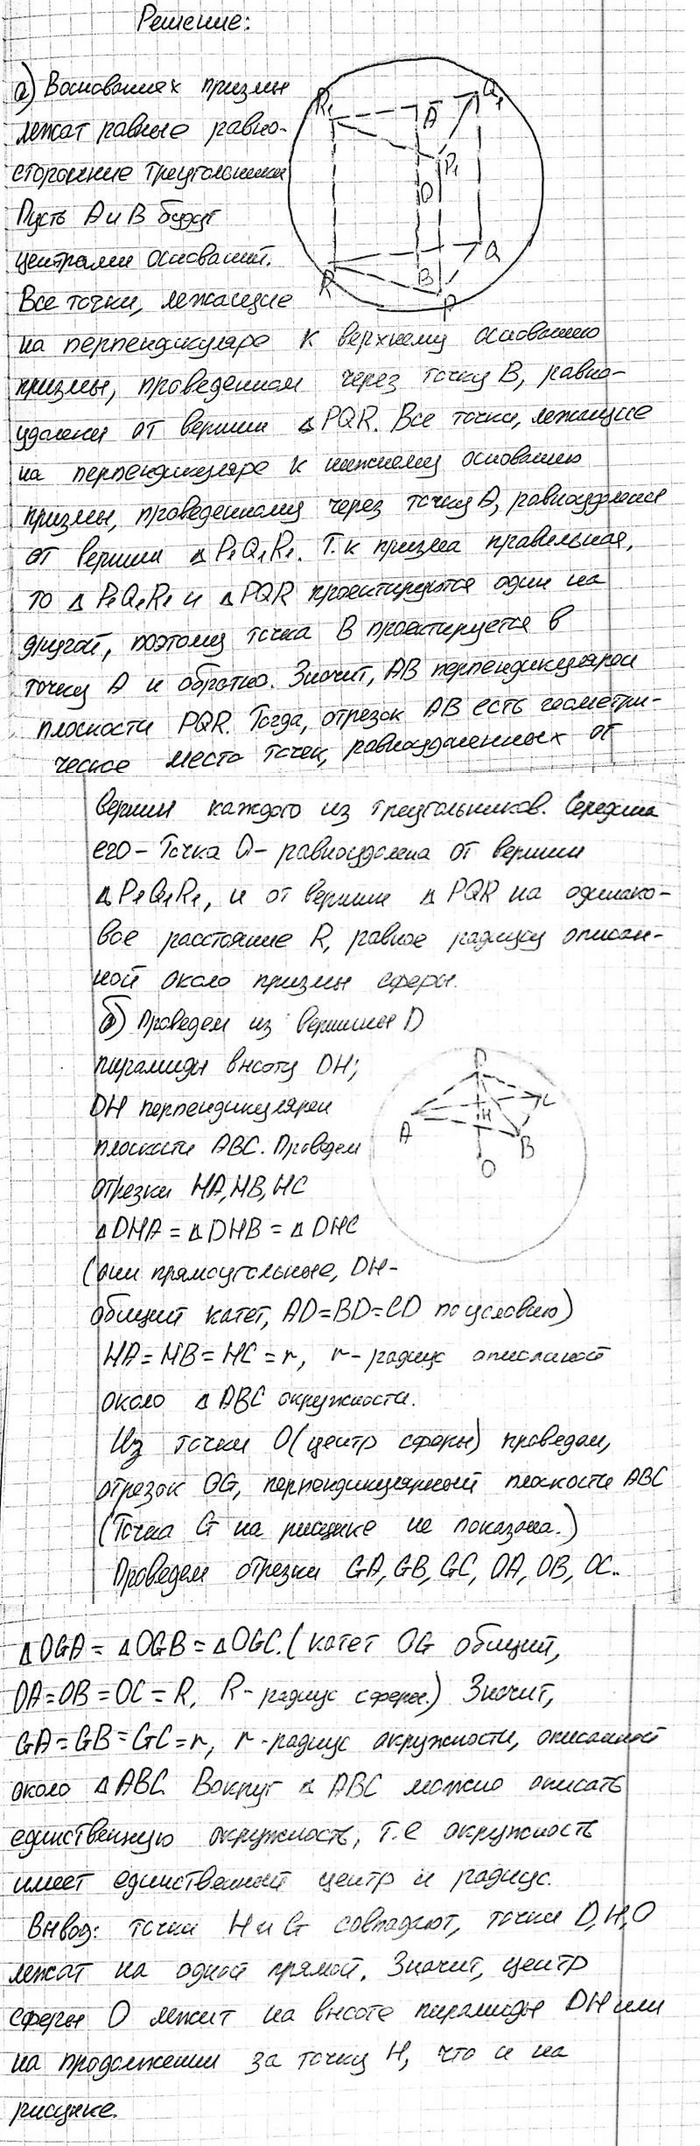 Решение:
а) Воснованиях призмы
лежат равные равно-
сторонние треугольники
Пусть А и В будут
центрами оснований.
Все точки, лежащие
на перпендикуляре к верхнему основанию
призмы, проведенном через точку В, равно-
удалены от вершин △PQR. Все точки, лежащие
на перпендикуляре к нижнему основанию
призмы, проведенному через точку А, равноудалены
от вершин △P₁Q₁R₁. Т.к призма правильная,
то △P₁Q₁R₁ и △PQR проектируются один на
другой, поэтому точка В проектируется в
точку А и обратно. Значит, АВ перпендикулярен
плоскости PQR. Тогда, отрезок АВ есть геометри-
ческое место точек, равноудаленных от
вершин каждого из треугольников. Середина
его - точка О - равноудалена от вершин
△P₁Q₁R₁, и от вершин △PQR на одинако-
вое расстояние R, равное радиусу описан-
ной около призмы сферы.
R₁
A
Q₁
P₁
O
Q
R
B
P
б) Проведем из вершины D
пирамиды высоту DH;
DH перпендикулярен
плоскости ABC. Проведем
отрезки HA, HB, HC
△DHA = △DHB = △DHC
(они прямоугольные, DH-
общий катет, AD=BD=CD по условию)
HA=HB=HC=r, r-радиус описанной
около △ABC окружности.
D
C
H
A
B
O
Из точки О (центр сферы) проведем,
отрезок OG, перпендикулярный плоскости ABC
(Точка G на рисунке не показана.)
Проведем отрезки GA, GB, GC, OA, OB, OC..
△OGA = △OGB = △OGC. (катет OG общий,
OA=OB=OC=R, R-радиус сферы.) Значит,
GA=GB=GC=r, r-радиус окружности, описанной
около △ABC. Вокруг △ABC можно описать
единственную окружность, т.е окружность
имеет единственный центр и радиус.
Вывод: точки H и G совпадают, точки D,H,O
лежат на одной прямой. Значит, центр
сферы О лежит на высоте пирамиды DH или
на продолжении за точку H, что и на
рисунке.